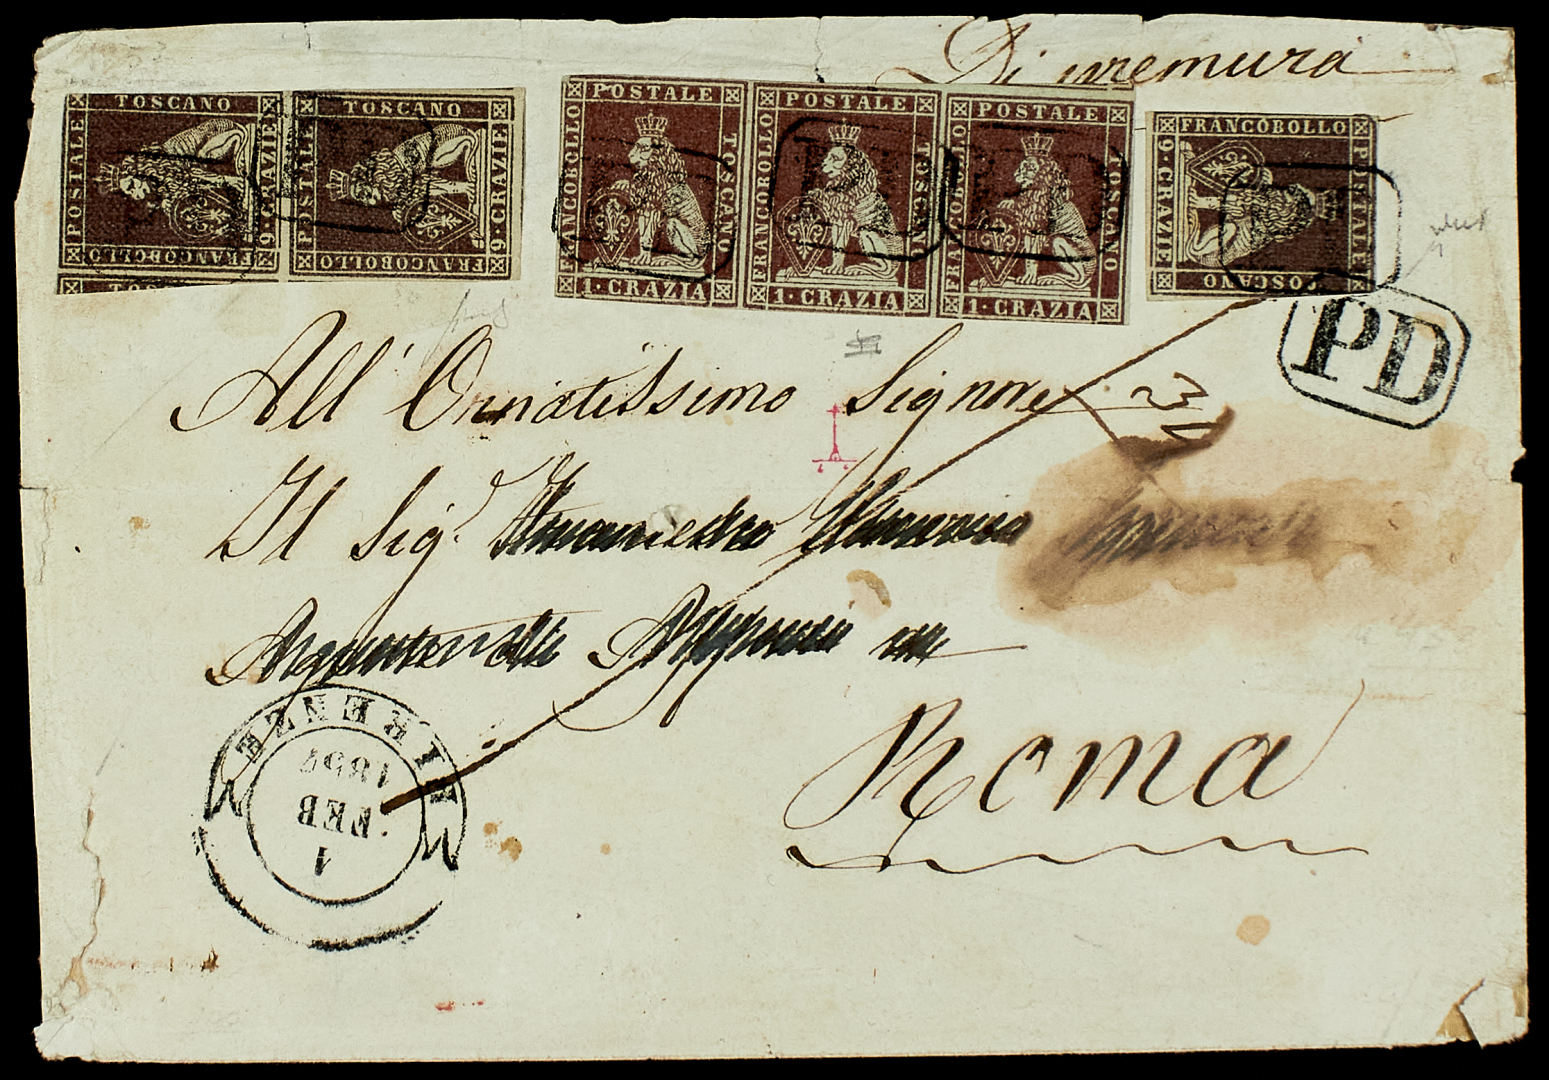 Di premura
TOSCANO
POSTALE
9·CRAZIE
FRANCOBOLLO
TOSCANO
TOSCANO
POSTALE
9·CRAZIE
FRANCOBOLLO
POSTALE
FRANCOBOLLO
TOSCANO
1·CRAZIA
POSTALE
FRANCOBOLLO
TOSCANO
1·CRAZIA
POSTALE
FRANCOBOLLO
TOSCANO
1·CRAZIA
FRANCOBOLLO
9·CRAZIE
POSTALE
TOSCANO
PD
PD
PD
PD
All' Ornatissimo Signore
Il Sig.
Roma
FIRENZE
1
FEB
1857